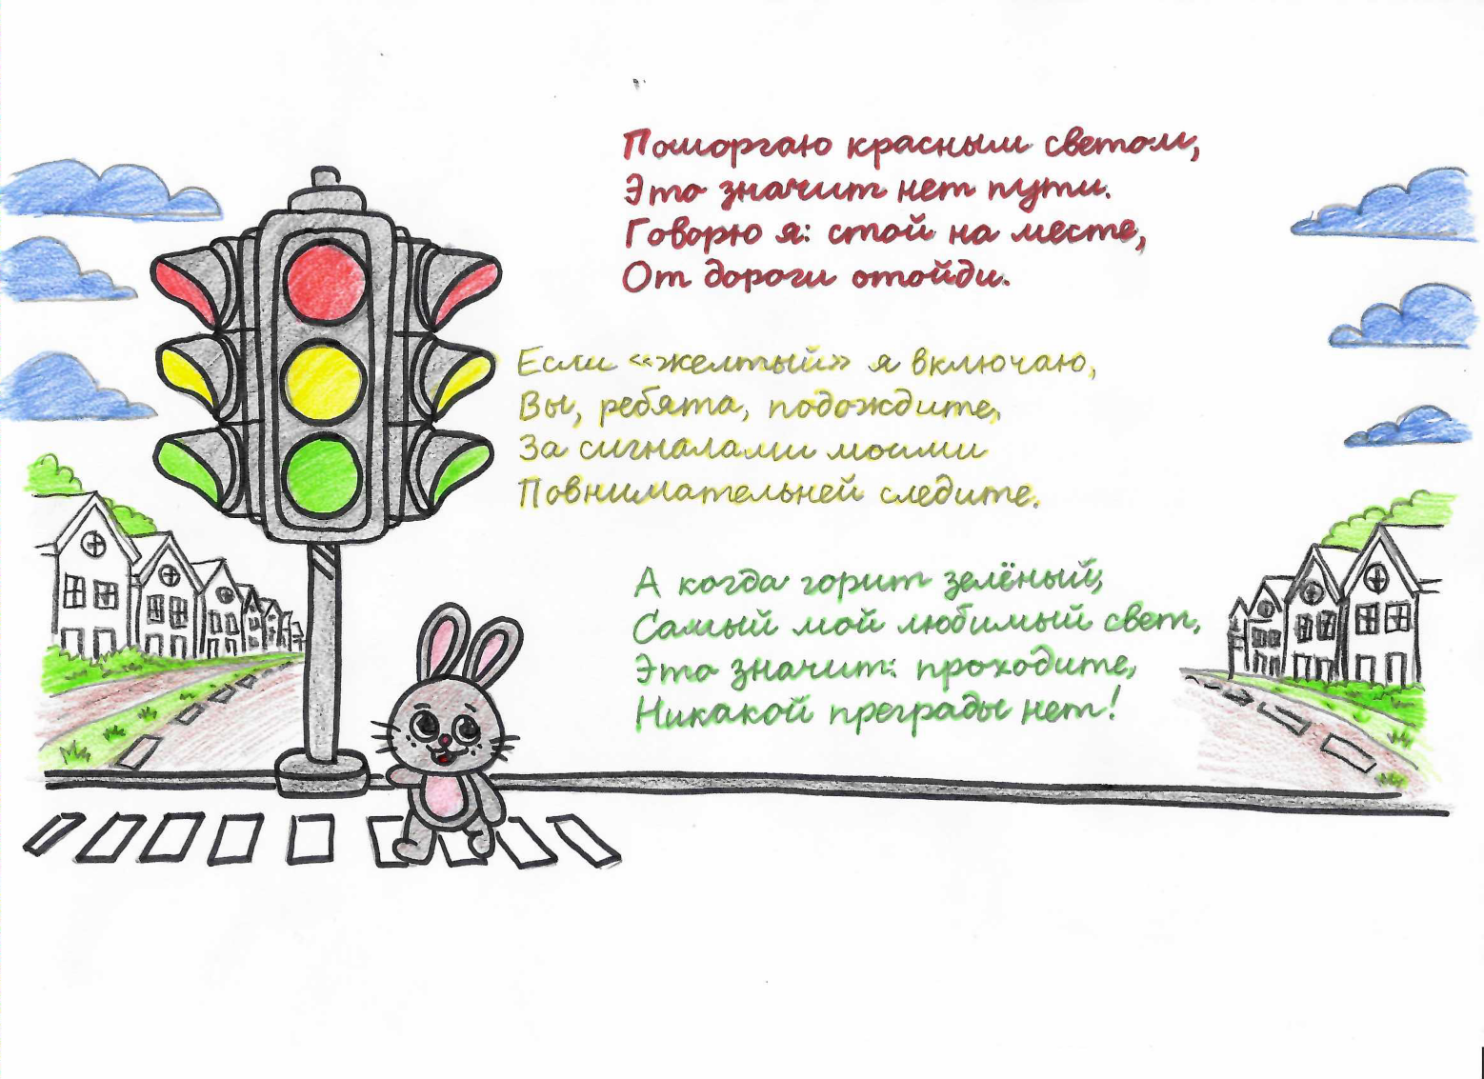 Поморгаю красным светом,
Это значит нет пути.
Говорю я: стой на месте,
От дороги отойди.
Если «желтый» я включаю,
Вы, ребята, подождите,
За сигналами моими
Повнимательней следите.
А когда горит зелёный,
Самый мой любимый свет,
Это значит: проходите,
Никакой преграды нет!